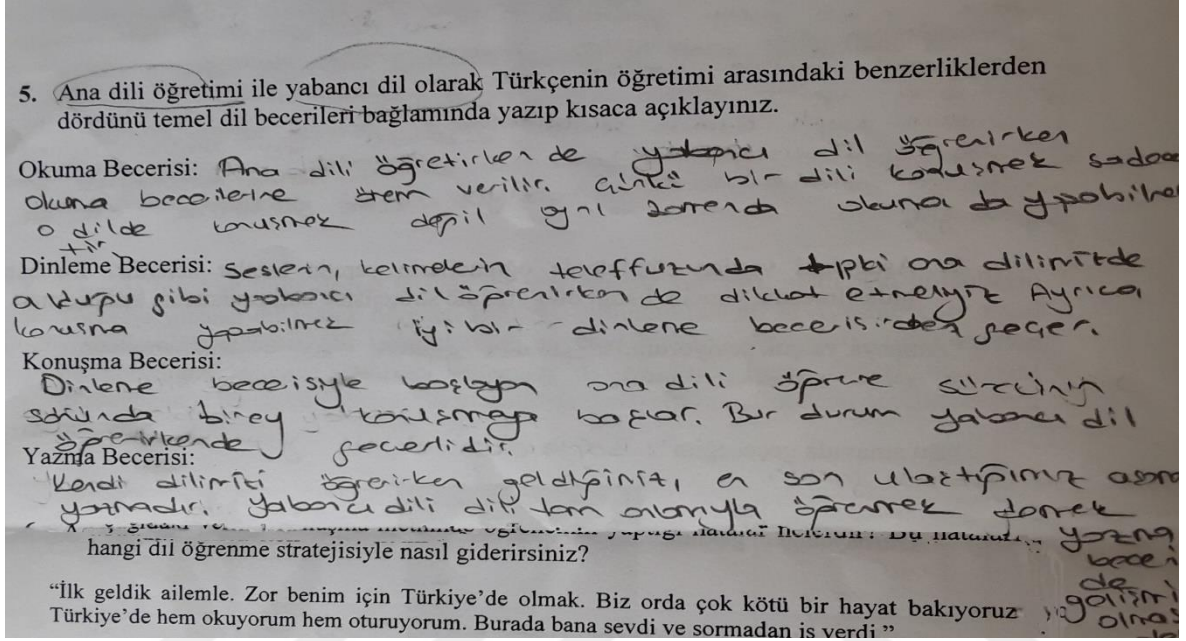 5. Ana dili öğretimi ile yabancı dil olarak Türkçenin öğretimi arasındaki benzerliklerden
dördünü temel dil becerileri bağlamında yazıp kısaca açıklayınız.
Okuma Becerisi: Ana dili öğretirken de yabancı dil öğrenirken
okuma becerilerine önem verilir. Çünkü bir dili konuşmak sadece
o dilde konuşmak değil aynı zamanda okuma da yapabilmek
tir
Dinleme Becerisi: Seslerin, kelimelerin teleffuzunda tıpkı ana dilimizde
olduğu gibi yabancı dil öğrenirken de dikkat etmeliyiz Ayrıca
konuşma yapabilmek iyi bir dinleme becerisinden geçer.
Konuşma Becerisi:
Dinleme becerisiyle başlayan ana dili öğrenme sürecinin
sonunda birey konuşmaya başlar. Bu durum yabancı dil
öğrenirkende geçerlidir.
Yazma Becerisi:
Kendi dilimizi öğrenirken geldiğimiz, en son ulaştığımız aşama
yazmadır. Yabancı dili tam anlamıyla öğrenmek demek
yazma
hangi dil öğrenme stratejisiyle nasıl giderirsiniz?
beceri
de
gelişmiş
olması
“İlk geldik ailemle. Zor benim için Türkiye’de olmak. Biz orda çok kötü bir hayat bakıyoruz
Türkiye’de hem okuyorum hem oturuyorum. Burada bana sevdi ve sormadan iş verdi.”